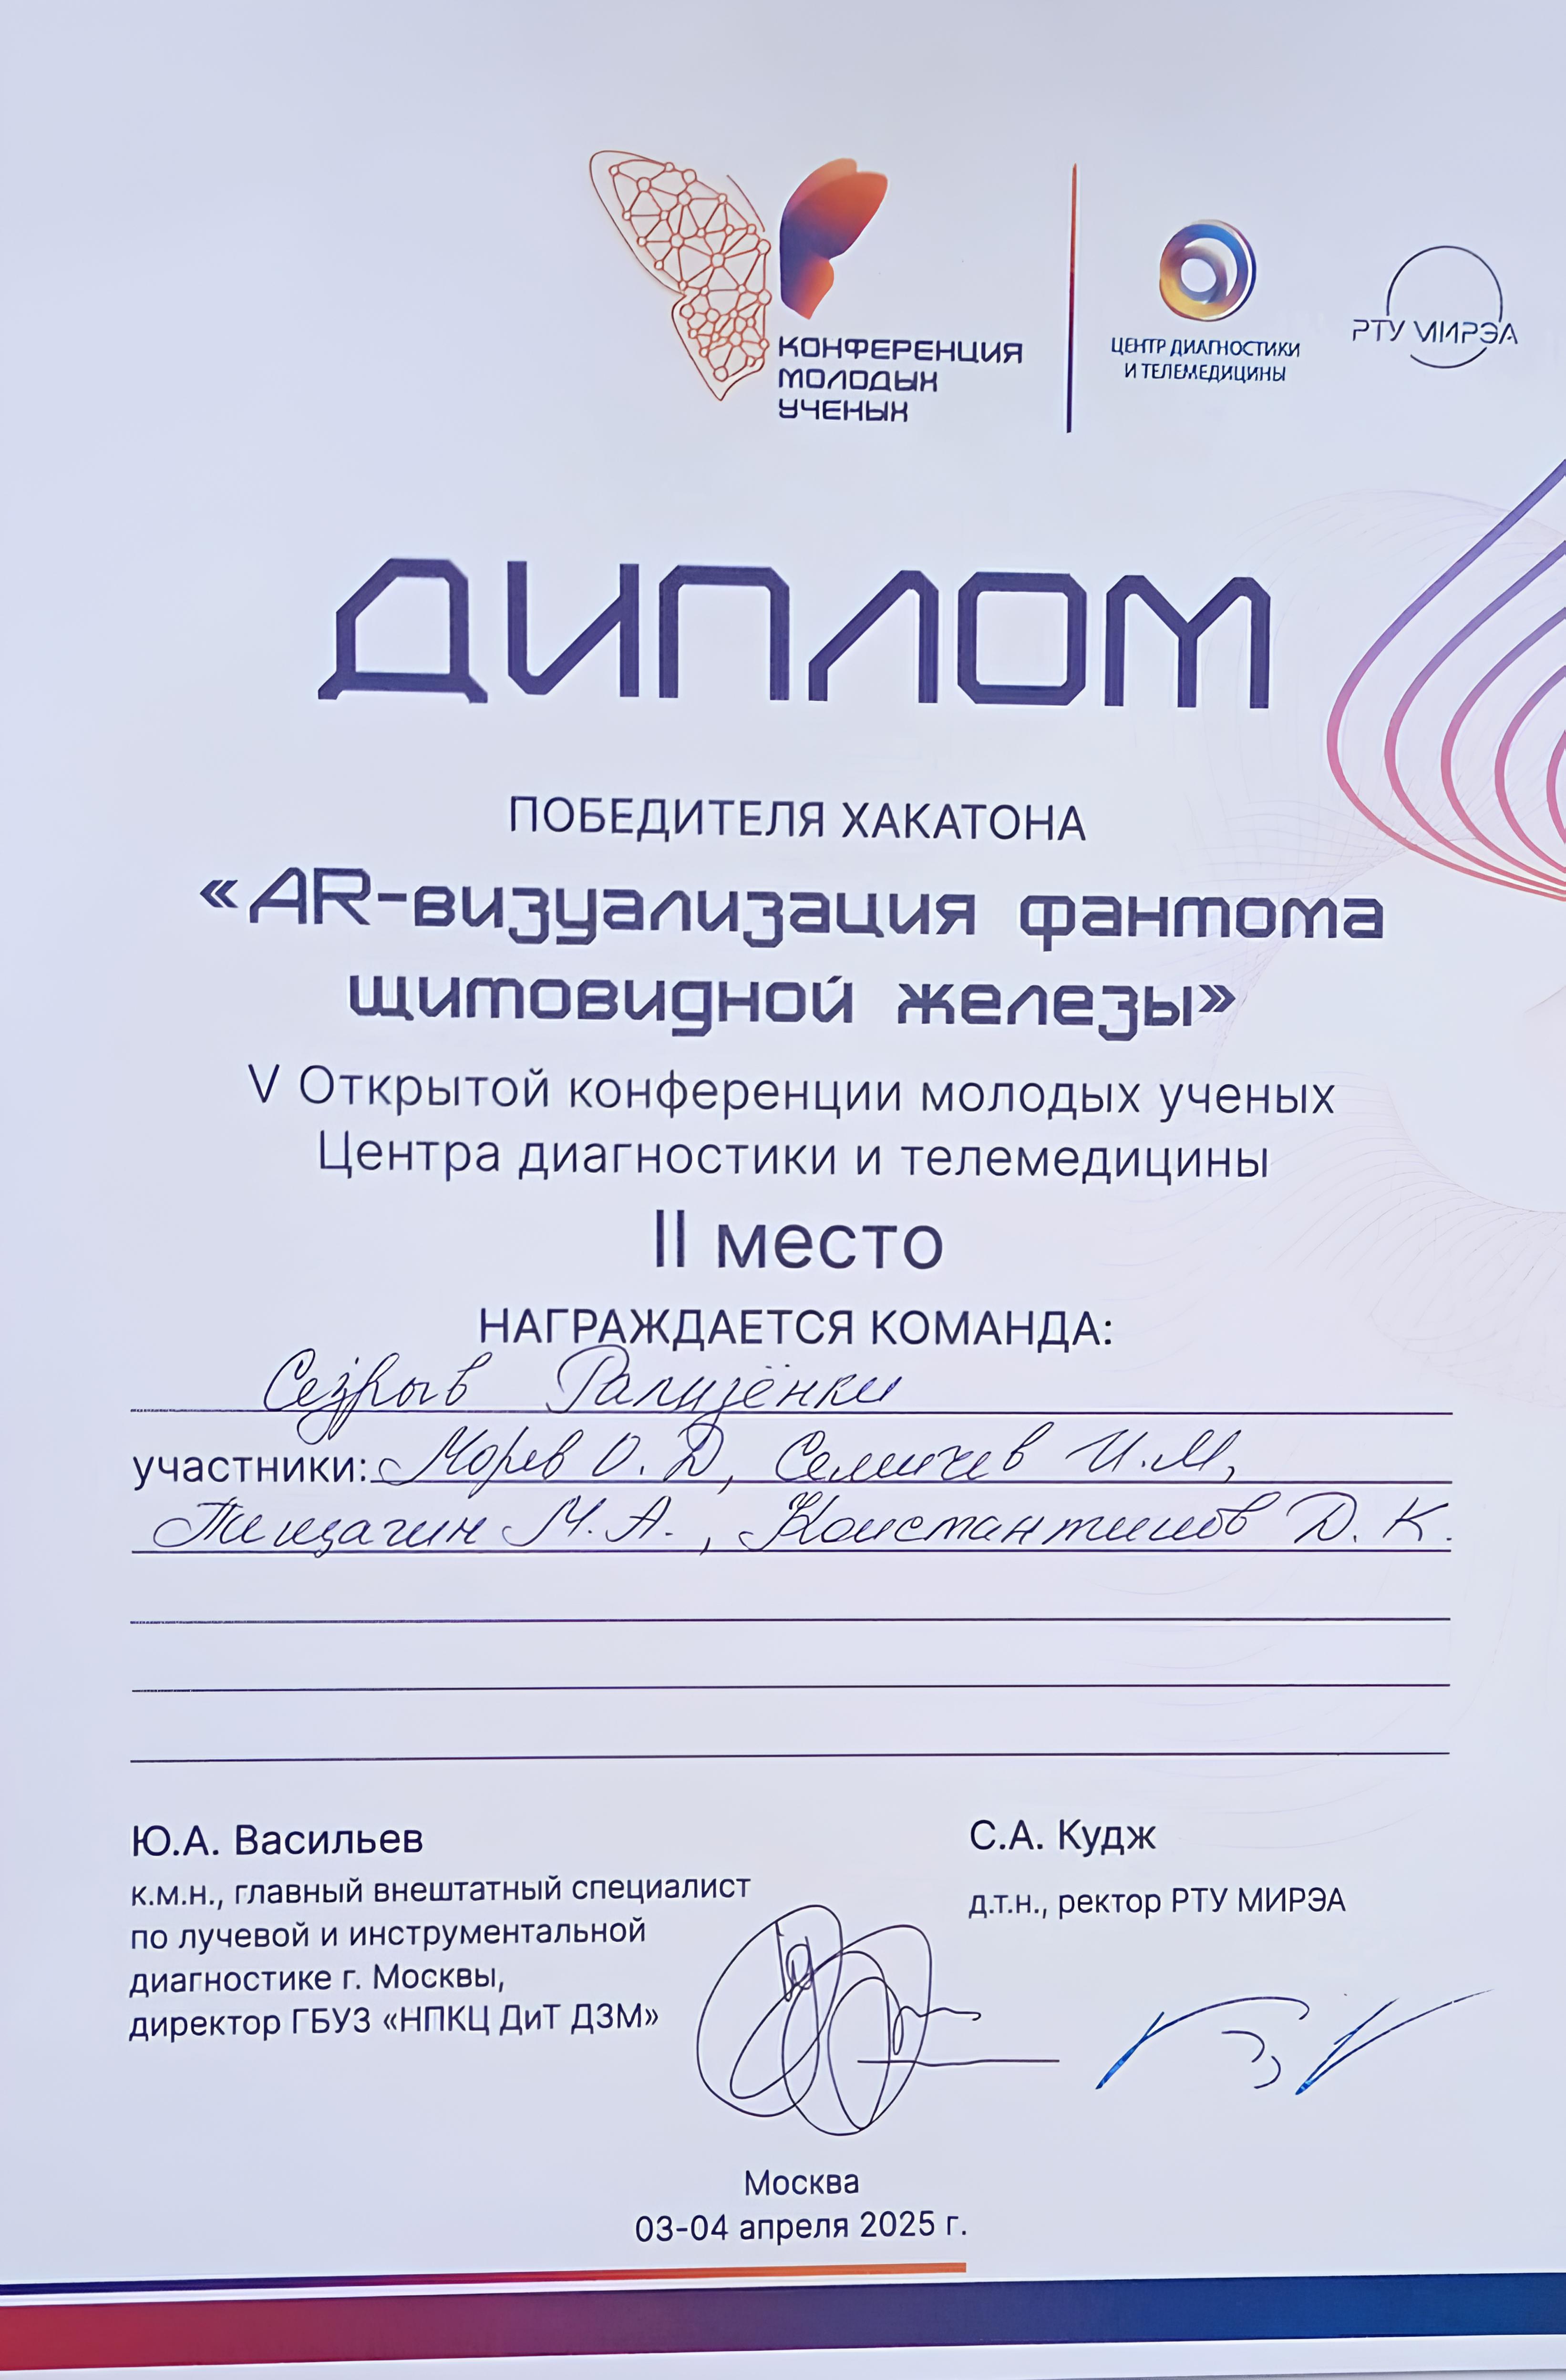 КОНФЕРЕНЦИЯ
МОЛОДЫХ
УЧЕНЫХ
ЦЕНТР ДИАГНОСТИКИ
И ТЕЛЕМЕДИЦИНЫ
РТУ МИРЭА
ДИПЛОМ
ПОБЕДИТЕЛЯ ХАКАТОНА
«AR-визуализация фантома
щитовидной железы»
V Открытой конференции молодых ученых
Центра диагностики и телемедицины
II место
НАГРАЖДАЕТСЯ КОМАНДА:
участники: Морев О. Д, Семичев И.М,
М. А., Константинов Д. К.
Ю.А. Васильев
к.м.н., главный внештатный специалист
по лучевой и инструментальной
диагностике г. Москвы,
директор ГБУЗ «НПКЦ ДиТ ДЗМ»
С.А. Кудж
д.т.н., ректор РТУ МИРЭА
Москва
03-04 апреля 2025 г.